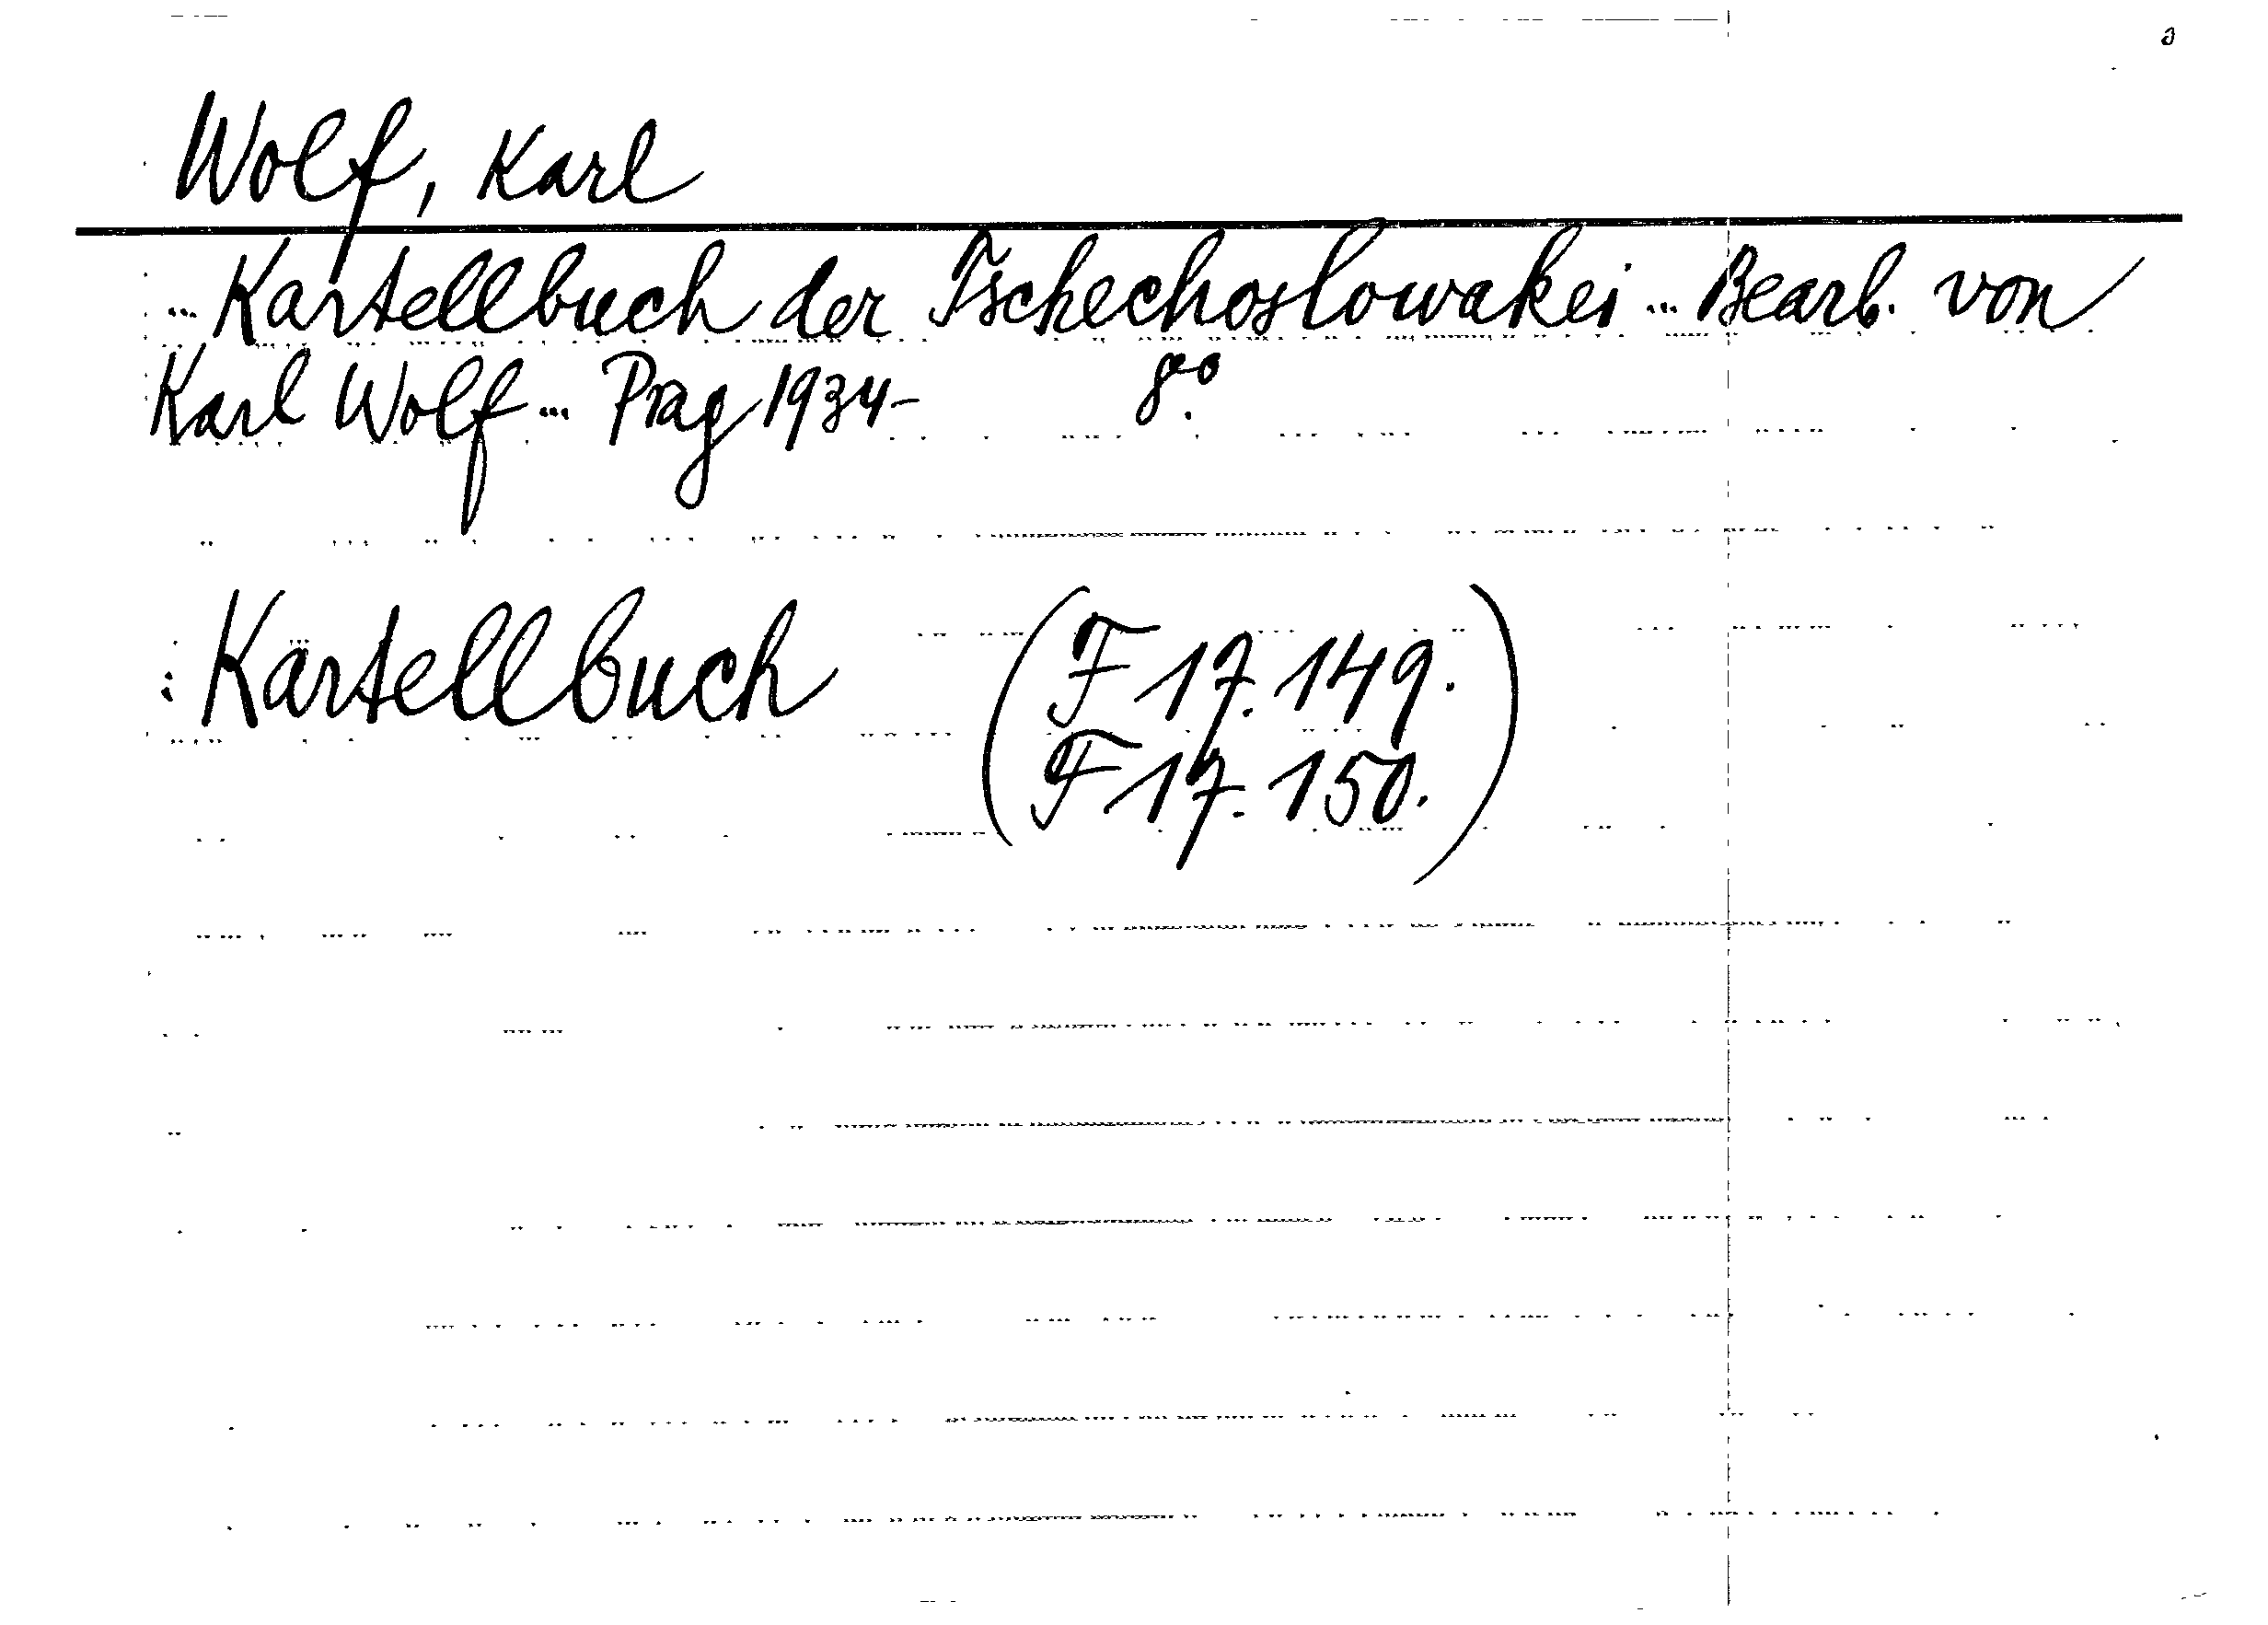 Wolf, Karl
... Kartellbuch der Tschechoslowakei ... Bearb. von
Karl Wolf ... Prag 1934- 8°.
Kartellbuch (F 17. 149.
F 17. 150.)